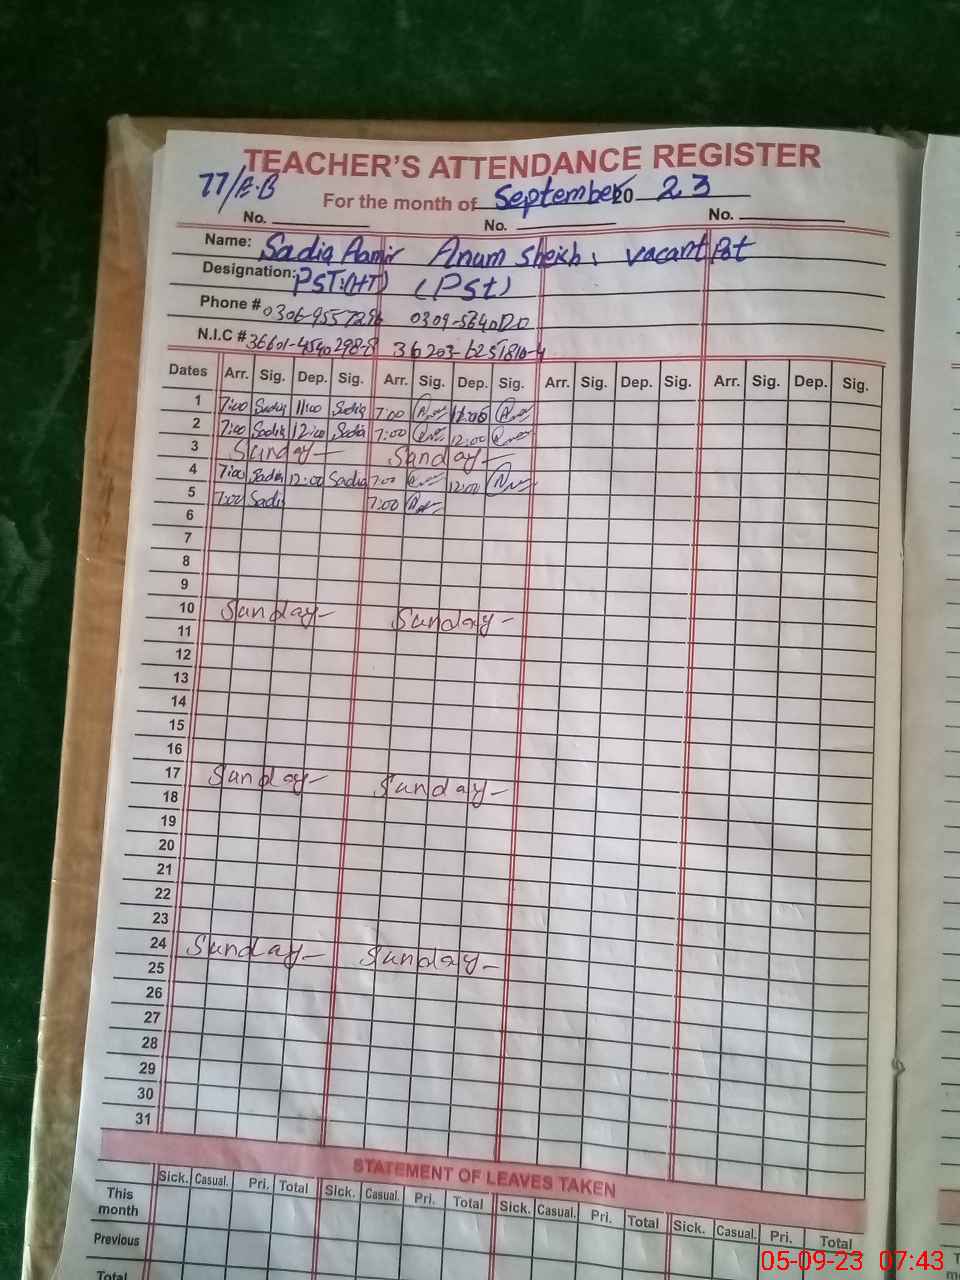 TEACHER'S ATTENDANCE REGISTER
77/E.B
For the month of September 20 23
No. No. No.
Name: Sadia Aamir Anum Sheikh, vacant Pst
Designation: PST:(HT) (Pst)
Phone # 0306-9557296
N.I.C # 36601-4540298-8 36203-6251810-4
Dates Arr. Sig. Dep. Sig. Arr. Sig. Dep. Sig. Arr. Sig. Dep. Sig. Arr. Sig. Dep. Sig.
1 7:00 Sadia 11:00 Sadia 7:00
2 7:00 Sadia 12:00 Sadia 7:00 12:00
3 Sunday- Sunday-
4 7:00 Sadia 12:00 Sadia 7:00 12:00
5 7:00 Sadia 7:00
6
7
8
9
10 Sunday- Sunday-
11
12
13
14
15
16
17 Sunday- Sunday-
18
19
20
21
22
23
24 Sunday- Sunday-
25
26
27
28
29
30
31
STATEMENT OF LEAVES TAKEN
Sick. Casual. Pri. Total Sick. Casual. Pri. Total Sick. Casual. Pri. Total Sick. Casual. Pri. Total
This month
Previous
Total
05-09-23 07:43